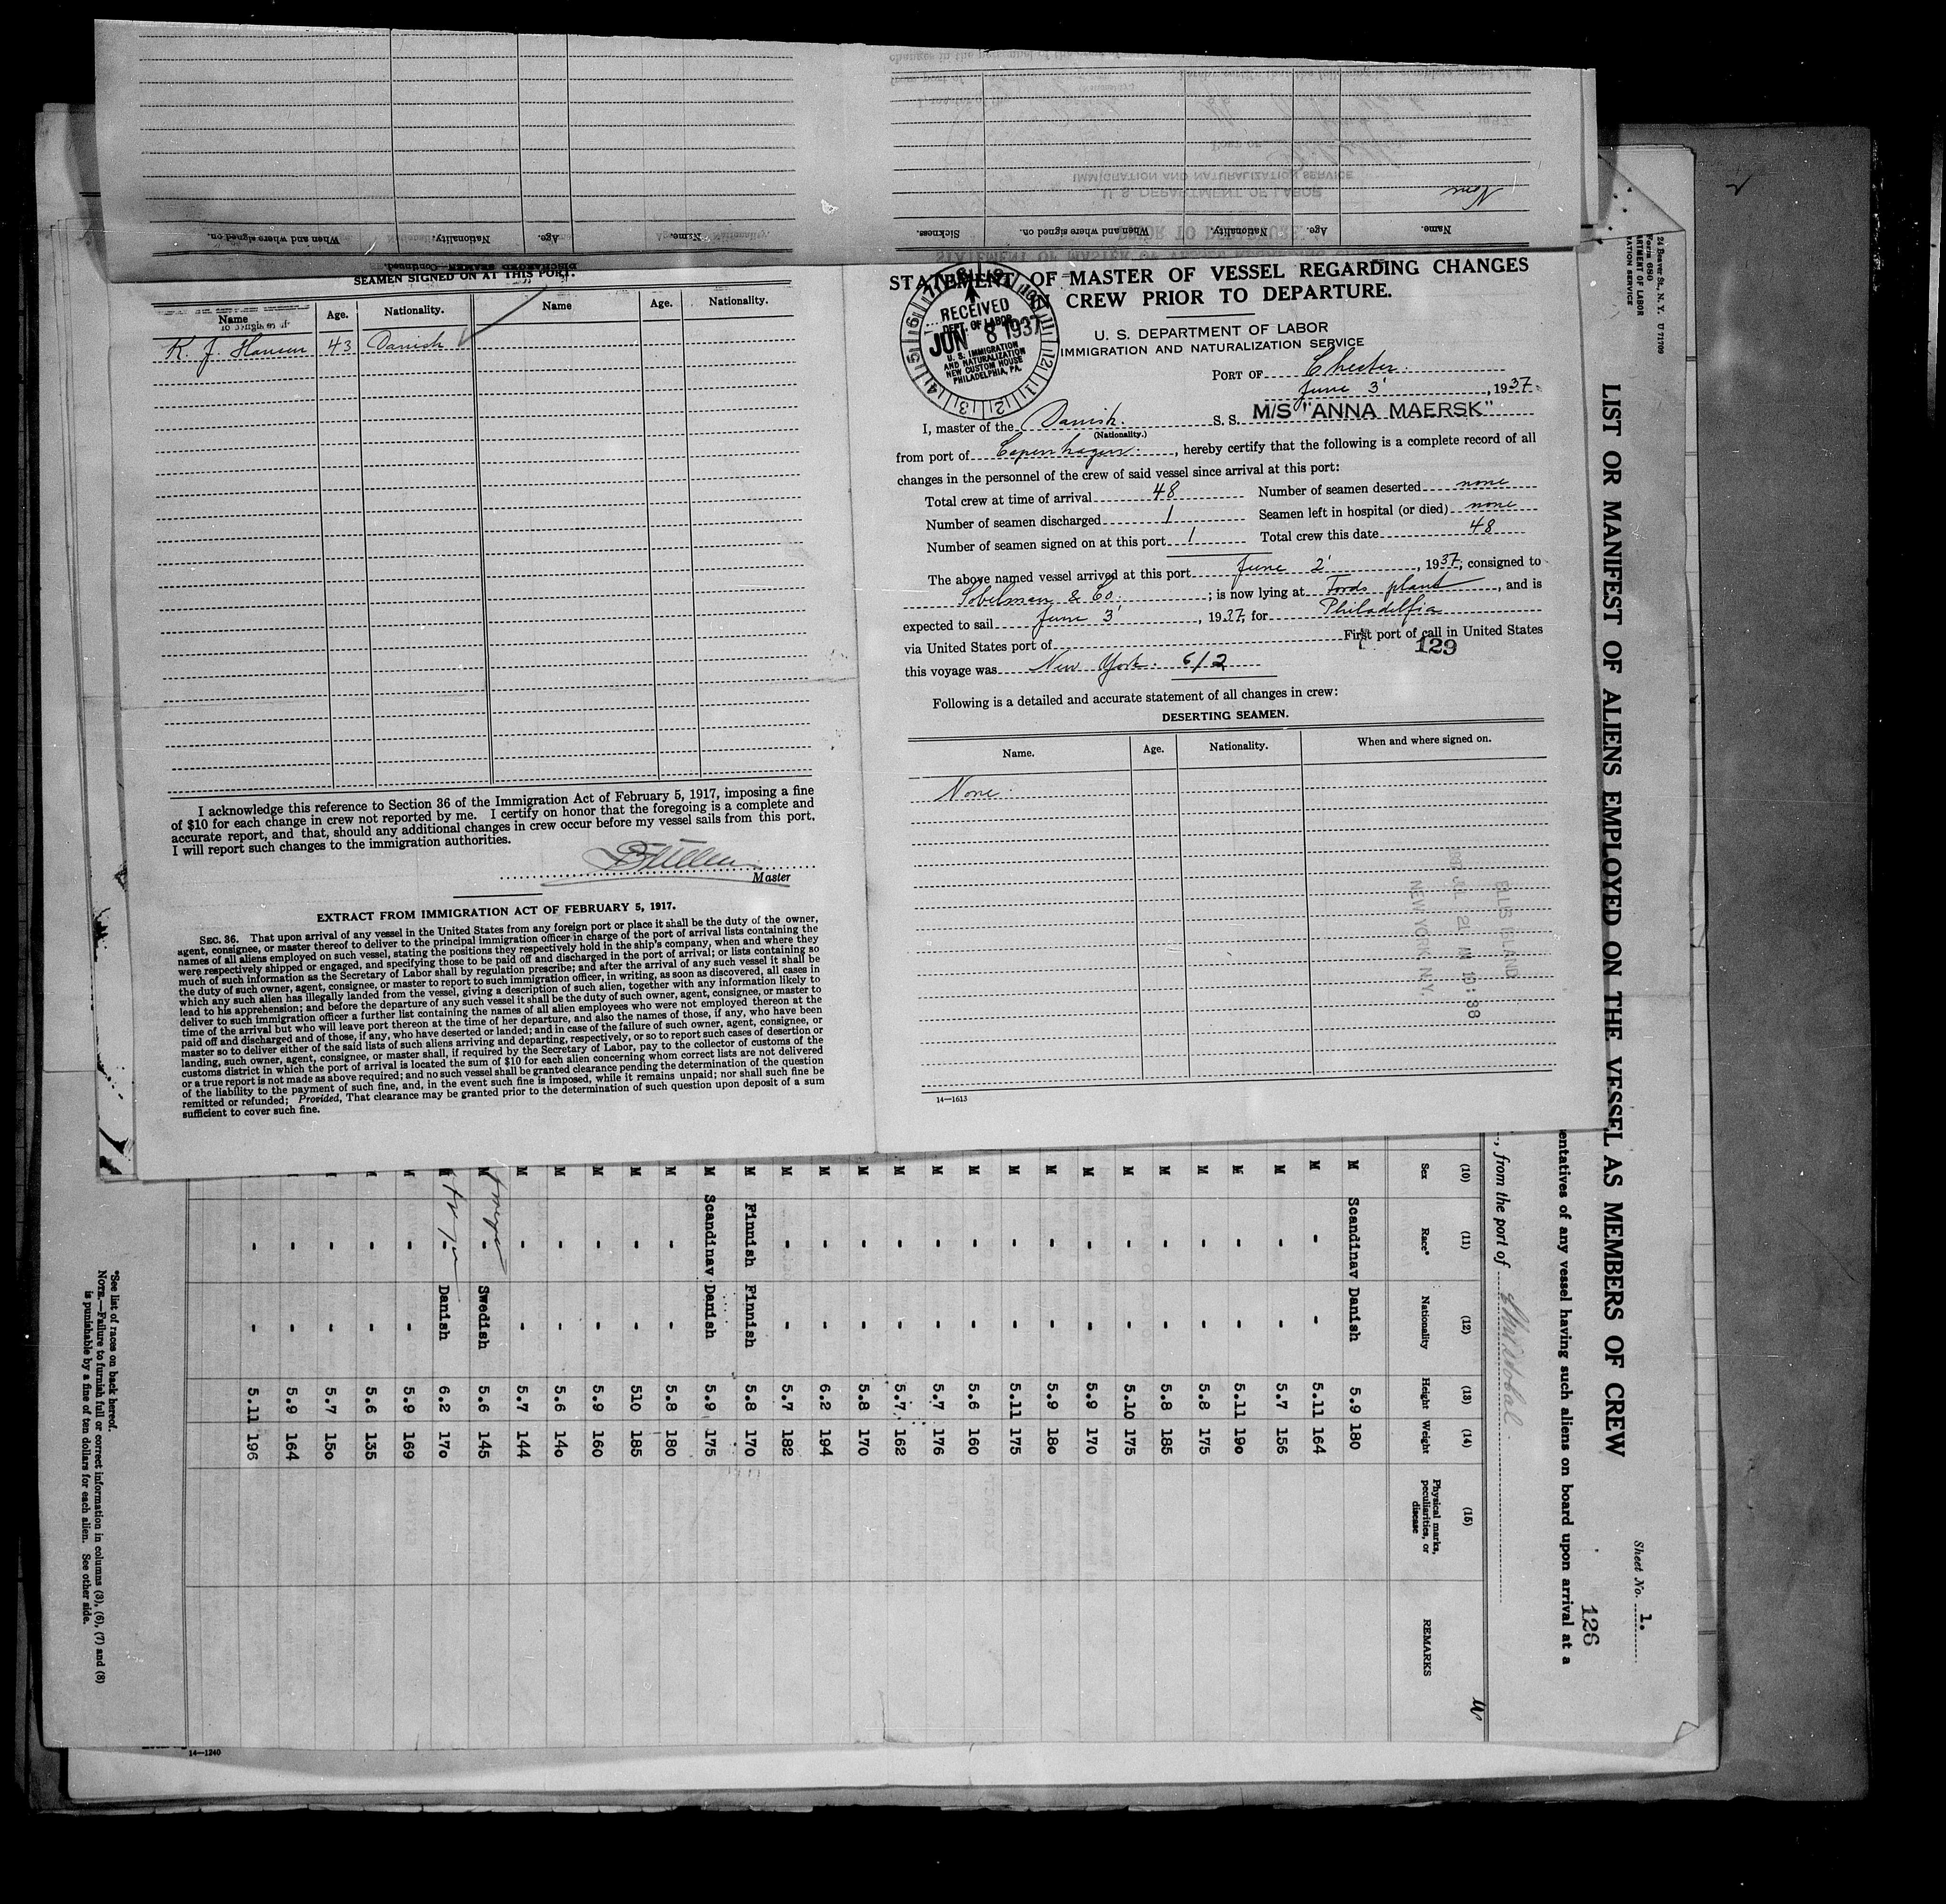 SEAMEN SIGNED ON AT THIS PORT.
Name Age. Nationality. Name Age. Nationality.
K. J. Hansen 43 Danish
I acknowledge this reference to Section 36 of the Immigration Act of February 5, 1917, imposing a fine
of $10 for each change in crew not reported by me. I certify on honor that the foregoing is a complete and
accurate report, and that, should any additional changes in crew occur before my vessel sails from this port,
I will report such changes to the immigration authorities.
Master
EXTRACT FROM IMMIGRATION ACT OF FEBRUARY 5, 1917.
SEC. 36. That upon arrival of any vessel in the United States from any foreign port or place it shall be the duty of the owner,
agent, consignee, or master thereof to deliver to the principal immigration officer in charge of the port of arrival lists containing the
names of all aliens employed on such vessel, stating the positions they respectively hold in the ship's company, when and where they
were respectively shipped or engaged, and specifying those to be paid off and discharged in the port of arrival; or lists containing so
much of such information as the Secretary of Labor shall by regulation prescribe; and after the arrival of any such vessel it shall be
the duty of such owner, agent, consignee, or master to report to such immigration officer, in writing, as soon as discovered, all cases in
which any such alien has illegally landed from the vessel, giving a description of such alien, together with any information likely to
lead to his apprehension; and before the departure of any such vessel it shall be the duty of such owner, agent, consignee, or master to
deliver to such immigration officer a further list containing the names of all alien employees who were not employed thereon at the
time of the arrival but who will leave port thereon at the time of her departure, and also the names of those, if any, who have been
paid off and discharged and of those, if any, who have deserted or landed; and in case of the failure of such owner, agent, consignee, or
master so to deliver either of the said lists of such aliens arriving and departing, respectively, or so to report such cases of desertion or
landing, such owner, agent, consignee, or master shall, if required by the Secretary of Labor, pay to the collector of customs of the
customs district in which the port of arrival is located the sum of $10 for each alien concerning whom correct lists are not delivered
or a true report is not made as above required; and no such vessel shall be granted clearance pending the determination of the question
of the liability to the payment of such fine, and, in the event such fine is imposed, while it remains unpaid; nor shall such fine be
remitted or refunded; Provided, That clearance may be granted prior to the determination of such question upon deposit of a sum
sufficient to cover such fine.
Name. Age. Nationality. When and where signed on.
Name. Age. Nationality. When and where signed on. Sickness.
STATEMENT OF MASTER OF VESSEL REGARDING CHANGES
IN CREW PRIOR TO DEPARTURE.
RECEIVED
DEPT. OF LABOR
JUN 8 1937
U. S. IMMIGRATION
AND NATURALIZATION
NEW CUSTOM HOUSE
PHILADELPHIA, PA.
U. S. DEPARTMENT OF LABOR
IMMIGRATION AND NATURALIZATION SERVICE
PORT OF Chester.
June 3', 1937.
I, master of the Danish. S. S. M/S "ANNA MAERSK"
(Nationality.)
from port of Copenhagen., hereby certify that the following is a complete record of all
changes in the personnel of the crew of said vessel since arrival at this port:
Total crew at time of arrival 48 Number of seamen deserted none
Number of seamen discharged 1 Seamen left in hospital (or died) none
Number of seamen signed on at this port 1 Total crew this date 48
The above named vessel arrived at this port June 2', 1937; consigned to
Sobelman & Co.; is now lying at Fords plant, and is
expected to sail June 3', 1937, for Philadelfia
via United States port of First port of call in United States
129
this voyage was New York. 6/2
Following is a detailed and accurate statement of all changes in crew:
DESERTING SEAMEN.
Name. Age. Nationality. When and where signed on.
None.
ELLIS ISLAND
JUL 21 AM 10:38
NEW YORK N.Y.
14—1613
24 Beaver St., N. Y. U 71709
Form 680
LIST OR MANIFEST OF ALIENS EMPLOYED ON THE VESSEL AS MEMBERS OF CREW
Sheet No. 1.
126
entatives of any vessel having such aliens on board upon arrival at a
, from the port of
(10) (11) (12) (13) (14) (15)
Sex Race* Nationality Height Weight Physical marks, peculiarities, or disease REMARKS
M Scandinav Danish 5.9 180
M - - 5.11 164
M - - 5.7 156
M - - 5.11 190
M - - 5.8 175
M - - 5.8 185
M - - 5.10 175
M - - 5.9 170
M - - 5.9 180
M - - 5.11 175
M - - 5.6 160
M - - 5.7 176
M - - 5.7 162
M - - 5.8 170
M - - 6.2 194
M - - 5.7 182
M Finnish Finnish 5.8 170
M Scandinav Danish 5.9 175
M - - 5.8 180
M - - 510 185
M - - 5.9 160
M - - 5.6 140
M - - 5.7 144
M - Swedish 5.6 145
M - Danish 6.2 170
M - - 5.9 169
- - 5.6 135
- - 5.7 150
- - 5.9 164
- - 5.11 196
*See list of races on back hereof.
NOTE.—Failure to furnish full or correct information in columns (3), (6), (7) and (8)
is punishable by a fine of ten dollars for each alien. See other side.
14—1240